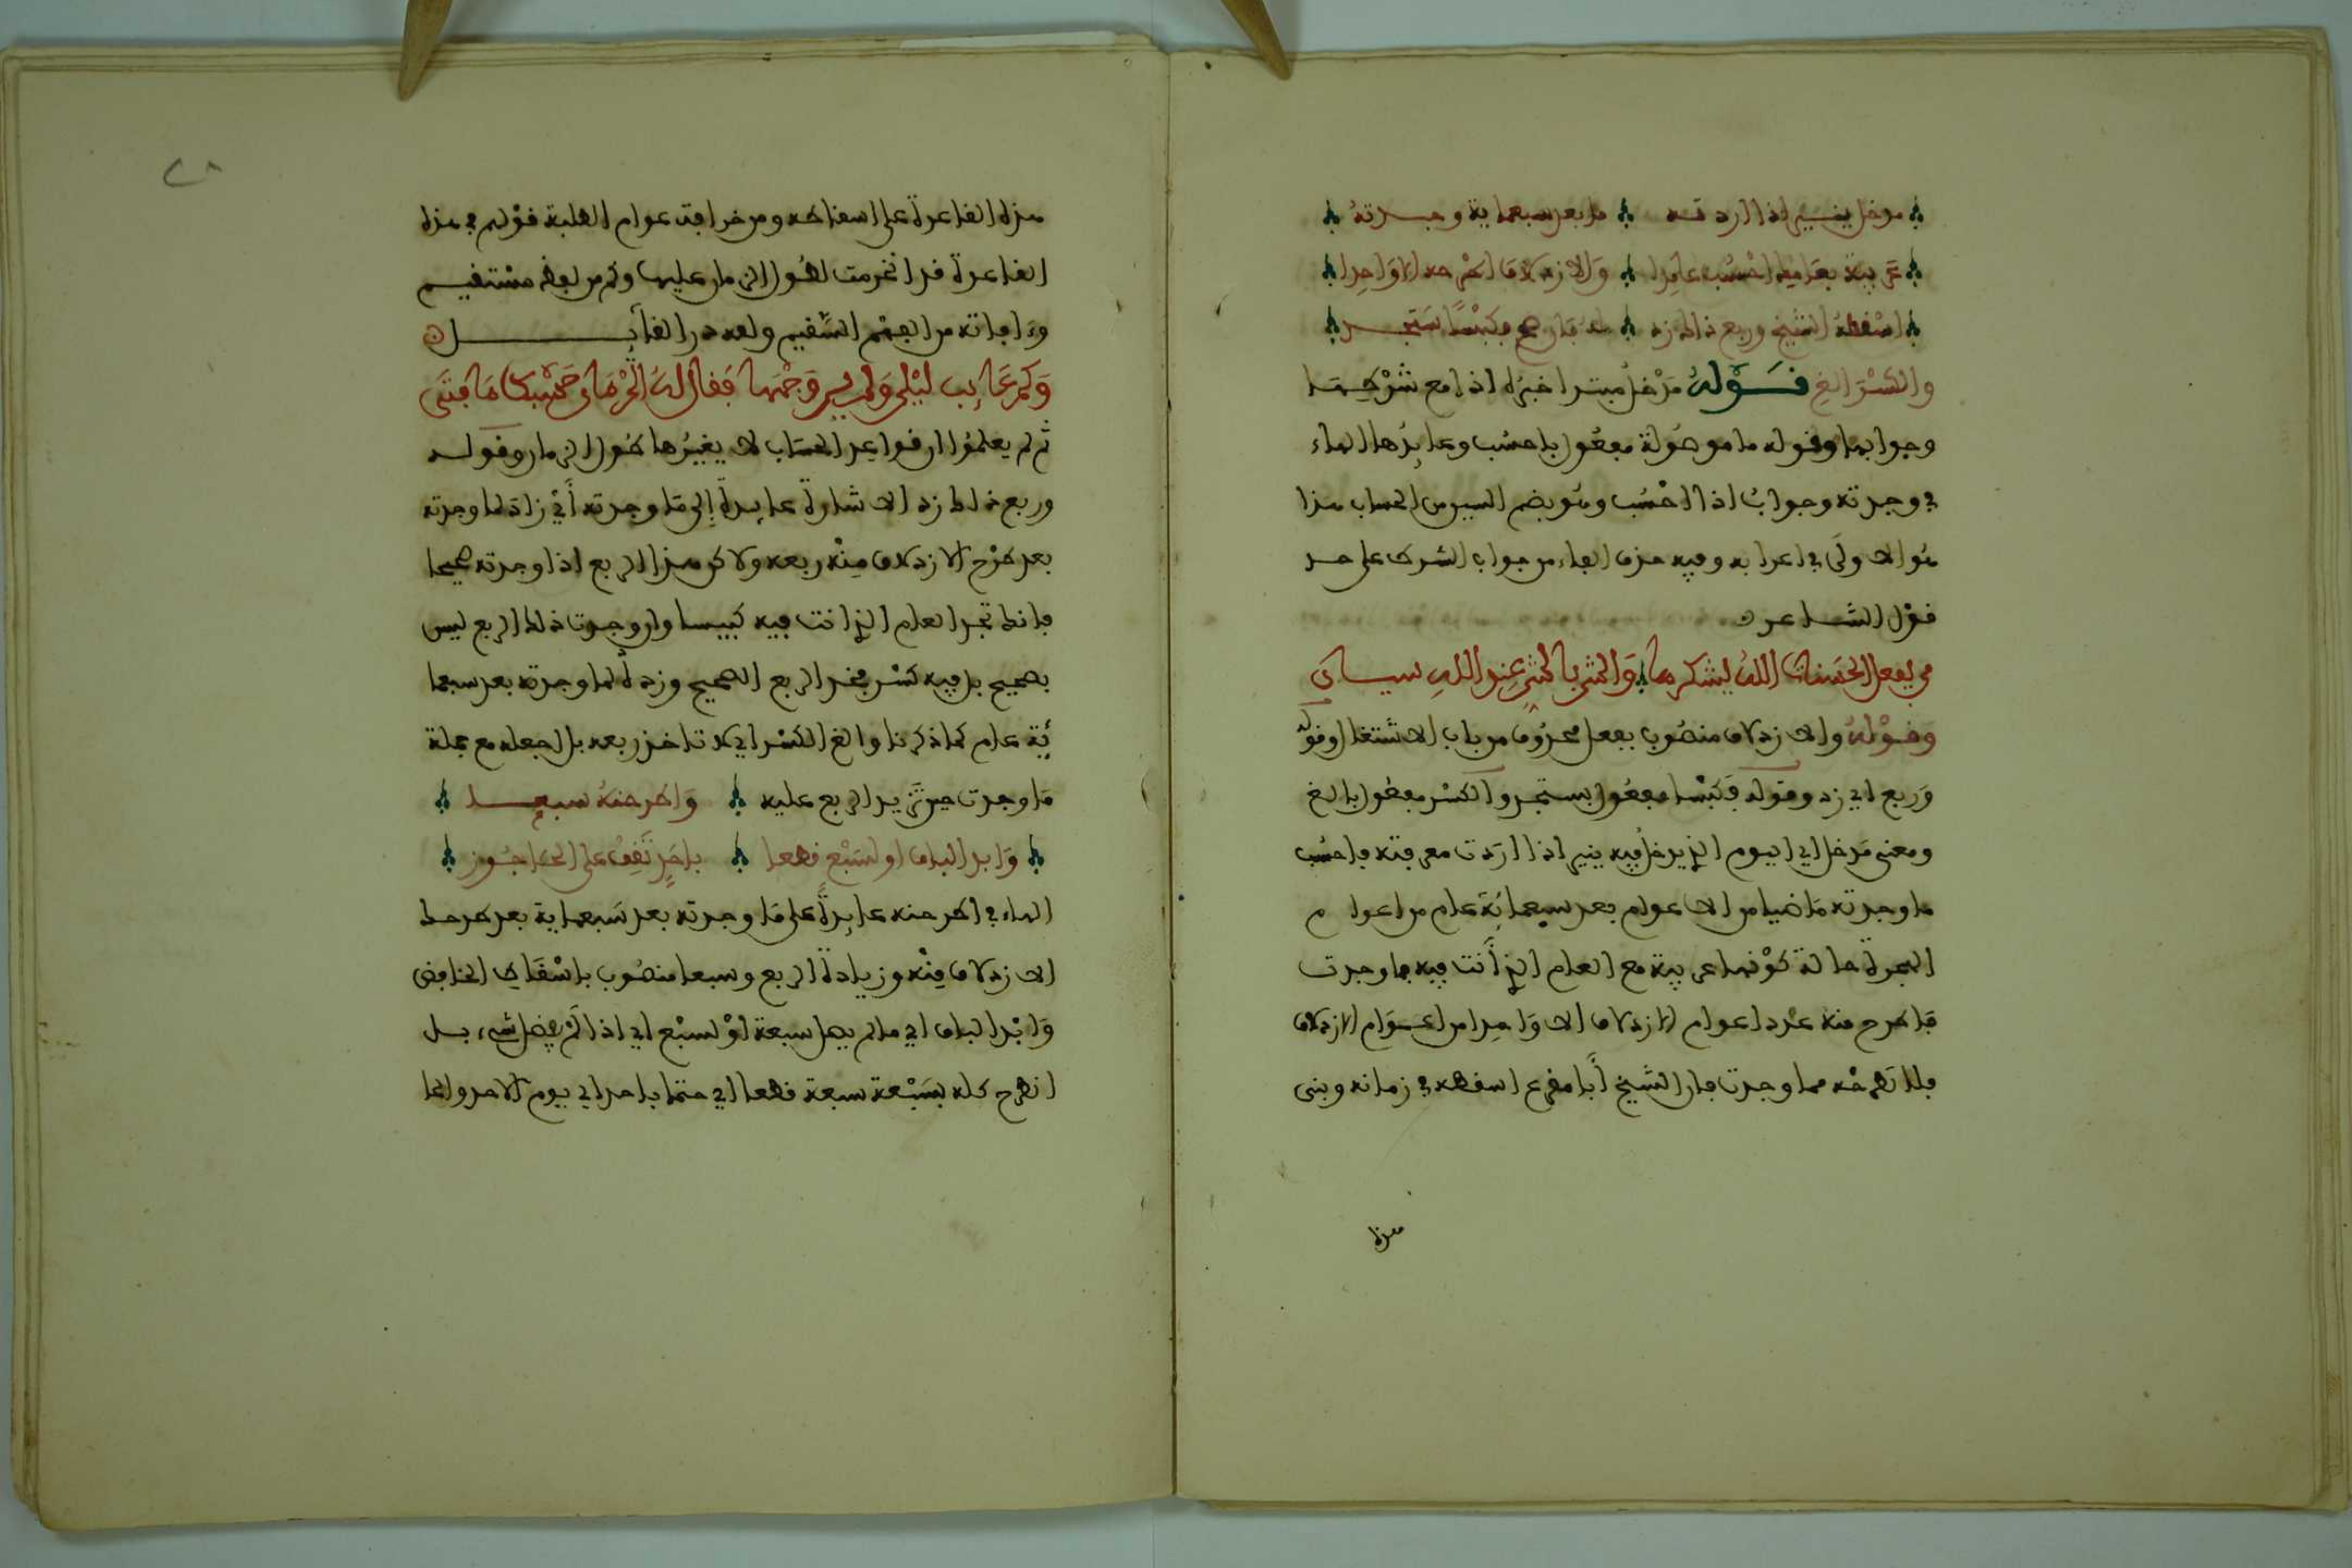 مدخل ينير إذا أردته ما بعد سبعماية وجدته
عربية بعامها احسب عايدا والازدلاف اطرحه إلا واحدا
أسقطه الشيخ وربع ذاك زد له فإن صح فكبسا تستجد
والكسر الغ قوله مدخل مبتدا خبره إذا مع شرطها
وجوابها وقوله ما موصولة مفعول باحسب وعايدها الهاء
في وجدته وجواب إذا احسب وهو بضم السين من الحساب هذا
هو الأولى في إعرابه وفيه حذف الفاء من جواب الشرط على حد
قول الشاعر
من يفعل الحسنات الله يشكرها والشر بالشر عند الله سيان
وقوله والازدلاف منصوب بفعل محذوف من باب الاشتغال وقوله
وربع أي زد وقوله فكبسا مفعول بستجد والكسر مفعول بالغ
ومعنى مدخل أي اليوم الذي يدخل فيه ينير إذا أردت معرفته فاحسب
ما وجدته ماضيا من الاعوام بعد سبعمائة عام من اعوام
الهجرة حالة كونها عربية مع العام الذي أنت فيه فما وجدت
فاطرح منه عدد اعوام الازدلاف الا واحدا من اعوام الازدلاف
فلا تطرحه مما وجدت فإن الشيخ أبا مقرع اسقطه في زمانه وبنى
هذا
٢٨
هذه القاعدة على اسقاطه ومن خرافة عوام الطلبة قولهم في هذه
القاعدة قد انخرمت لطول الزمان عليها وكم من لفظ مستقيم
وءافاته من الفهم السقيم ولله در القائل
وكم عائب ليلى ولم ير وجهها فقال له الحرمان حسبك ما فتى
ثم لم يعلموا ان قواعد الحساب لا يغيرها طول الزمان وقوله
وربع ذاك زد الاشارة عايدة إلى ما وجدته أي زاد لما وجدته
بعد طرح الازدلاف منه ربعه ولاكن هذا الربع اذا وجدته صحيحا
فإنك تجد العام الذي انت فيه كبيسا وان وجدت ذلك الربع ليس
بصحيح بل فيه كسر فخذ الربع الصحيح وزده لما وجدته بعد سبعما
ئة عام كما ذكرنا والغ الكسر أي لا تاخذ ربعه بل اجعله مع جملة
ما وجدت حين تزيد الربع عليه واطرحنه سبعا
وابد الباق او لسبع قطعا باحد تقف على الحا جوز
الهاء في اطرحنه عايدة على ما وجدته بعد سبعماية بعد طرحك
الازدلاف منه وزيادة الربع وسبعا منصوب باسقاط الخافض
وابد الباق أي مالم يصل سبعة أو لسبع أي اذا لم يفضل شيء بل
انطرح كله بسبعة سبعة قطعا أي حتما باحد أي يوم الاحد والحا